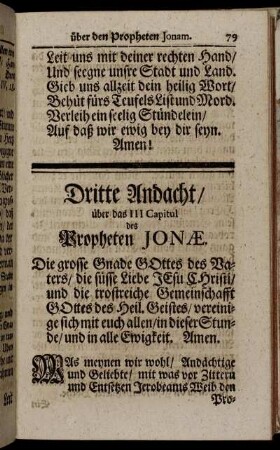 über den Propheten Jonam. 79
Leit uns mit deiner rechten Hand/
Und seegne unsre Stadt und Land.
Gieb uns allzeit dein heilig Wort/
Behüt fürs Teufels List und Mord.
Verleih ein seelig Stündelein/
Auf daß wir ewig bey dir seyn.
Amen!
Dritte Andacht/
über das III Capitul
des
Propheten JONÆ.
Die grosse Gnade GOttes des Va-
ters/ die süsse Liebe JEsu CHristi/
und die trostreiche Gemeinschafft
GOttes des Heil. Geistes/ vereini-
ge sich mit euch allen/ in dieser Stun-
de/ und in alle Ewigkeit. Amen.
WAs meynen wir wohl/ Andächtige
und Geliebte/ mit was vor Zittern
und Entsetzen Jerobeams Weib den
Pro-